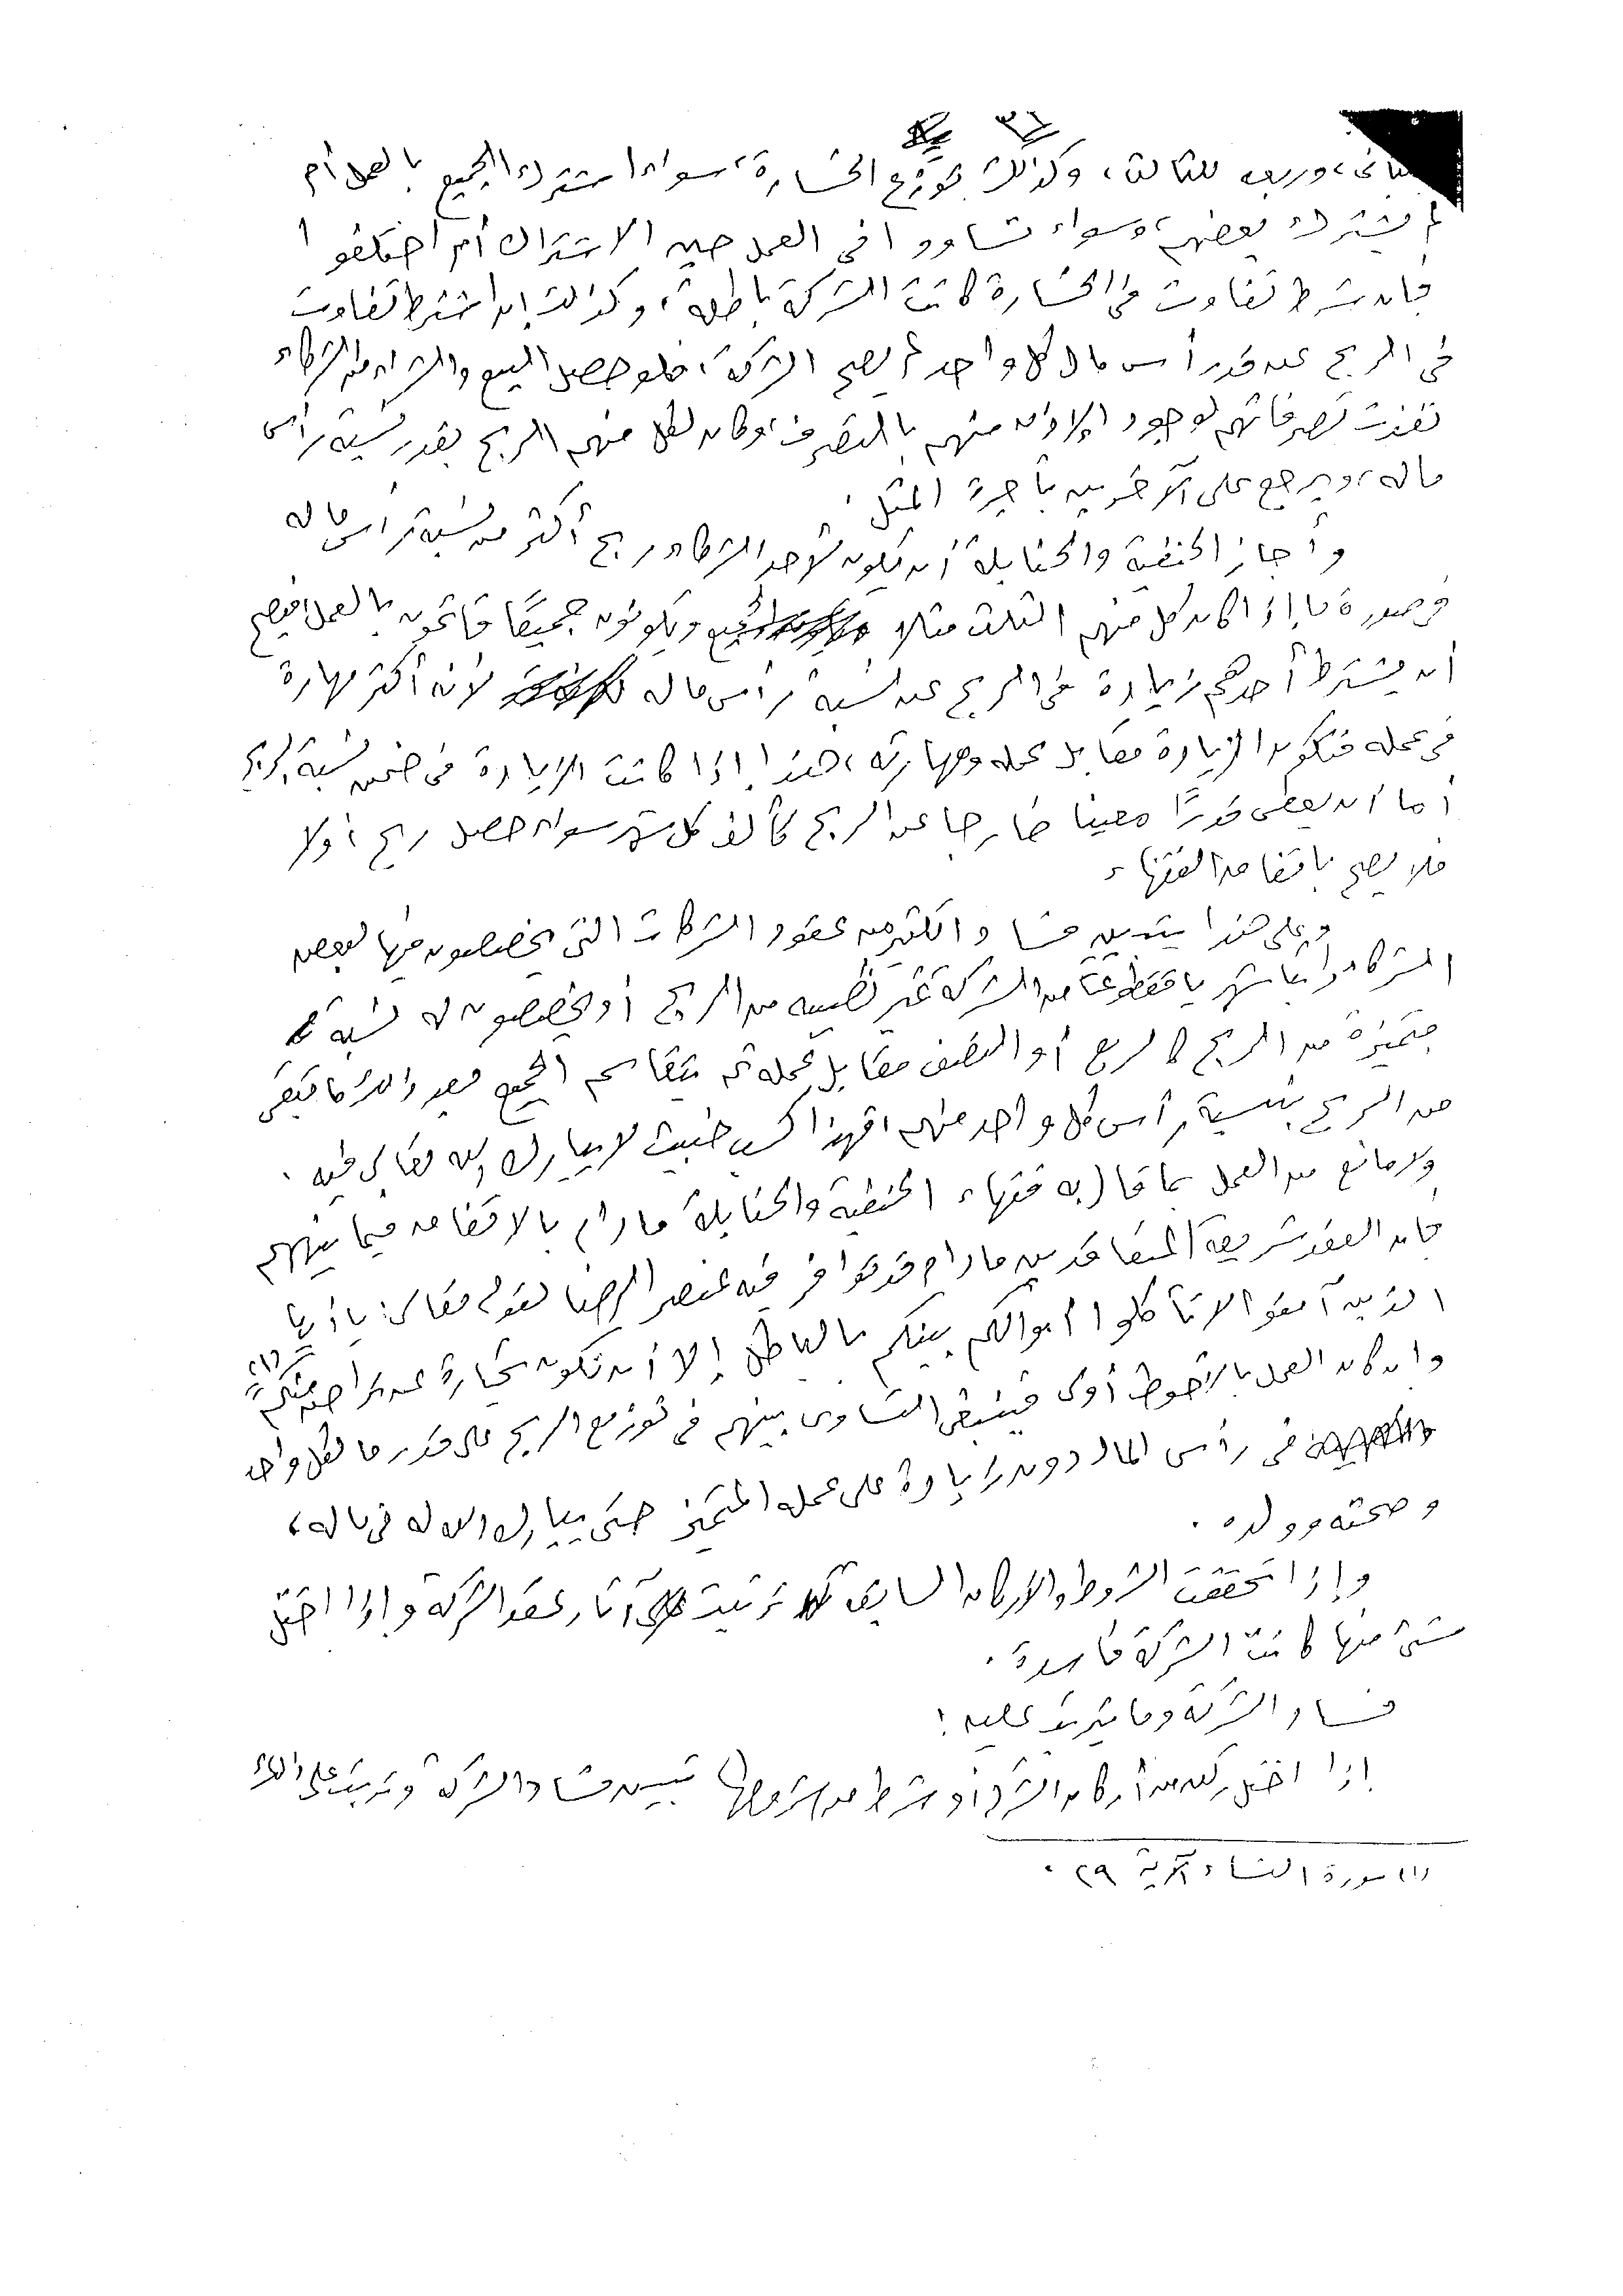 ٣٦
للثاني، وربعه للثالث، وكذلك توزع الخسارة، سواء اشترك الجميع بالعمل أم
لم يشترك بعضهم، وسواء تساووا في العمل حين الاشتراك أم اختلفوا
فإن شرط تفاوت في الخسارة كانت الشركة باطلة، وكذلك إن اشترط تفاوت
في الربح عن قدر رأس مال كل واحد لم يصح الشركة، فلو حصل البيع والشراء من الشركاء
نفذت تصرفاتهم لوجود الإذن منهم بالتصرف، وكان لكل منهم الربح بقدر نسبة رأس
ماله، ويرجع على الآخرين بأجرة المثل.
وأجاز الحنفية والحنابلة أن يكون لأحد الشركاء ربح أكثر من نسبة رأس ماله
في صورة ما إذا كان لكل منهم الثلث مثلا ويكونون جميعًا قائمون بالعمل فيصح
أن يشترط أحدهم زيادة في الربح عن نسبة رأس ماله لأنه أكثر مهارة
في عمله فتكون الزيادة مقابل عمله ومهارته، هذا إذا كانت الزيادة في ضمن نسبة الربح
أما أن يعطى قدرًا معينا خارجا عن الربح كألف كل شهر سواء حصل ربح أولا
فلا يصح باتفاق الفقهاء
وعلى هذا يتبين فساد الكثير من عقود الشركات التي يخصصون فيها لبعض
الشركاء راتبا شهريا مقطوعا من الشركة غير نصيبه من الربح أو يخصصون له نسبة
متميزة من الربح كالربع أو النصف مقابل عمله ثم يتقاسم الجميع بعد ذلك ما تبقى
من الربح بنسبة رأس كل واحد منهم، فهذا كسب خبيث لا يبارك الله تعالى فيه.
ولا مانع من العمل بما قال به فقهاء الحنفية والحنابلة ما دام بالاتفاق فيما بينهم
فإن العقد شريعة المتعاقدين ما دام قد توافر فيه عنصر الرضا لقوله تعالى: يا أيها
الذين آمنوا لا تأكلوا أموالكم بينكم بالباطل إلا أن تكون تجارة عن تراض منكم" (١)
وإن كان العمل بالأحوط أولى فينبغي التساوي بينهم في توزيع الربح على قدر ما لكل واحد
في رأس المال دون زيادة على عمله المتميز حتى يبارك الله له في ماله،
وصحته وولده.
وإذا تحققت الشروط والأركان السابق ترتبت آثار عقد الشركة وإذا اختل
شيء منها كانت الشركة فاسدة.
فساد الشركة وما يترتب عليه:
إذا اختل ركن من أركان الشركة أو شرط من شروطها تبين فساد الشركة وترتب على ذلك
(١) سورة النساء الآية ٢٩.